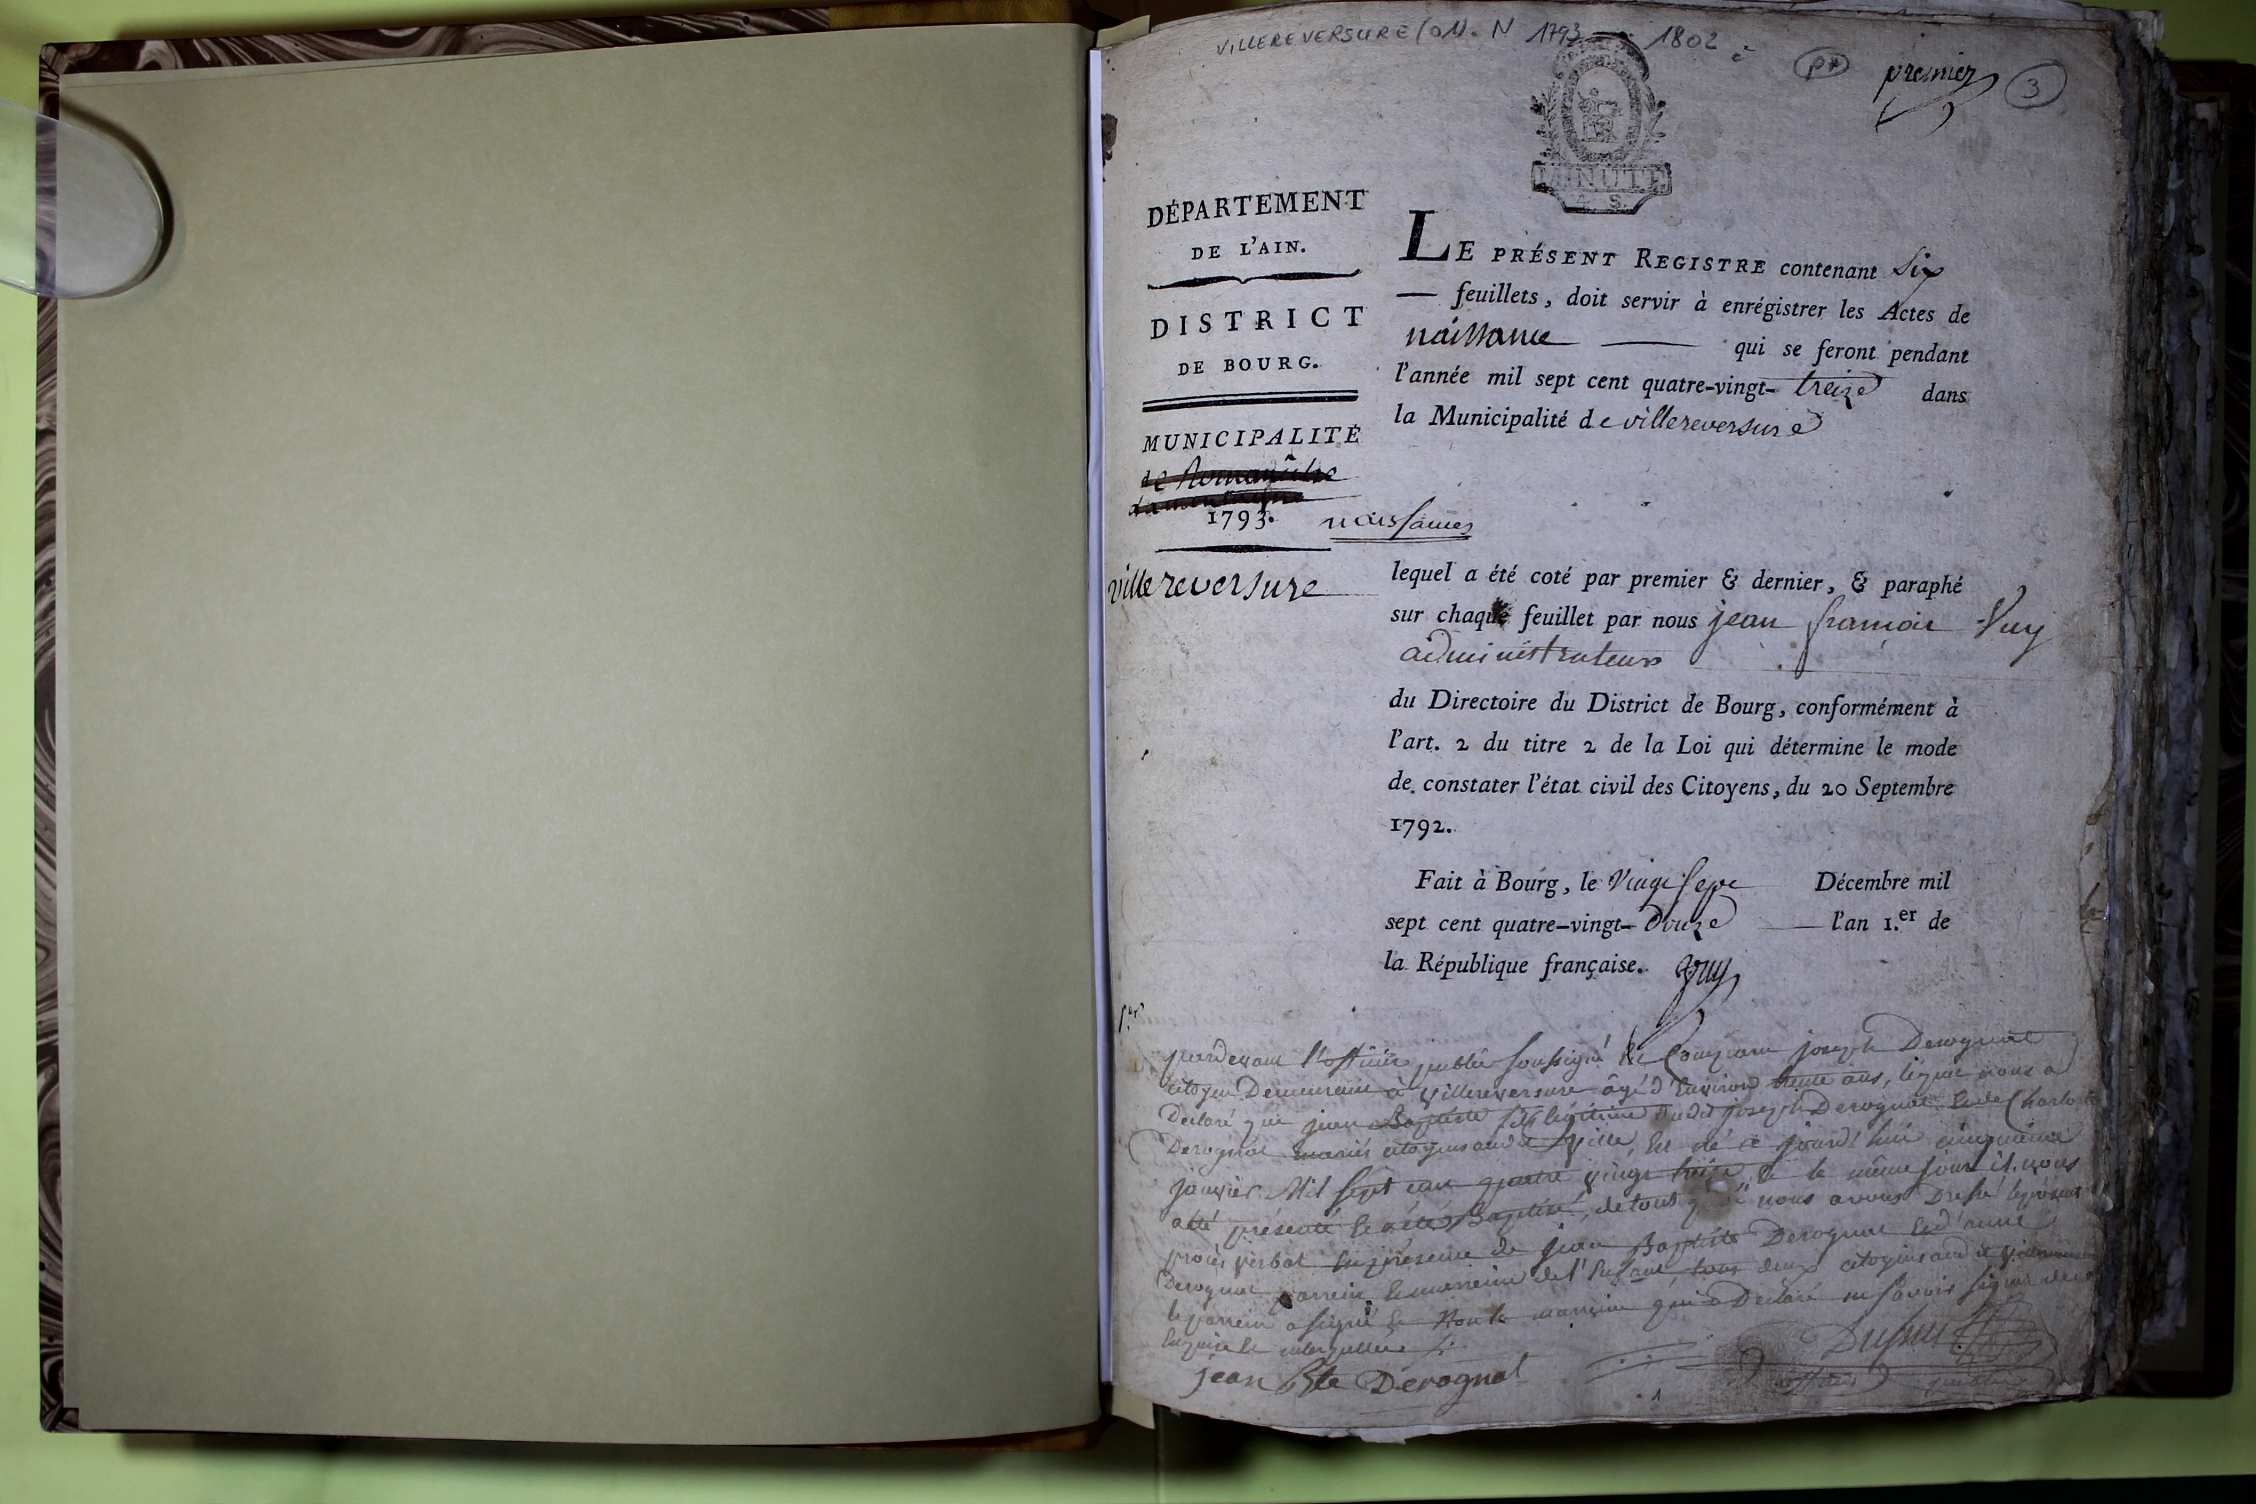 VILLEREVERSURE (01). N 1793 1802
premier
3
MINUTE
DÉPARTEMENT
DE L'AIN.
DISTRICT
DE BOURG.
MUNICIPALITÉ
1793. naissances
villereversure
LE PRÉSENT REGISTRE contenant six
— feuillets, doit servir à enrégistrer les Actes de
naissance — qui se feront pendant
l'année mil sept cent quatre-vingt-treize dans
la Municipalité de villereversure
lequel a été coté par premier & dernier, & paraphé
sur chaque feuillet par nous jean françois Vuy
administrateur
du Directoire du District de Bourg, conformément à
l'art. 2 du titre 2 de la Loi qui détermine le mode
de constater l'état civil des Citoyens, du 20 Septembre
1792.
Fait à Bourg, le vingt sept Décembre mil
sept cent quatre-vingt-douze — l'an 1.er de
la République française. Vuy
1.er
pardevant l'officier public soussigné est comparu joseph Derognat
citoyen Demeurant à villereversure âgé d'environ trente ans, lequel nous a
Declaré que jean Baptiste fils légitime dudit joseph Derognat et de Charlotte
Derognat mariés citoyens audit ville, est né ce jourd'hui cinquième
janvier Mil sept cent quatre vingt treize, et le même jour il nous
a été présenté et a été Baptisé, de tout quoi nous avons Dressé le présent
procès verbal en présence de jean Baptiste Derognat et d'anne
Derognat parrein et marreine de l'enfant, tous deux citoyens audit
le parrein a signé et non la marreine qui a Declaré ne savoir signer de ce
enquise et interpellée
jean Bte Derognat